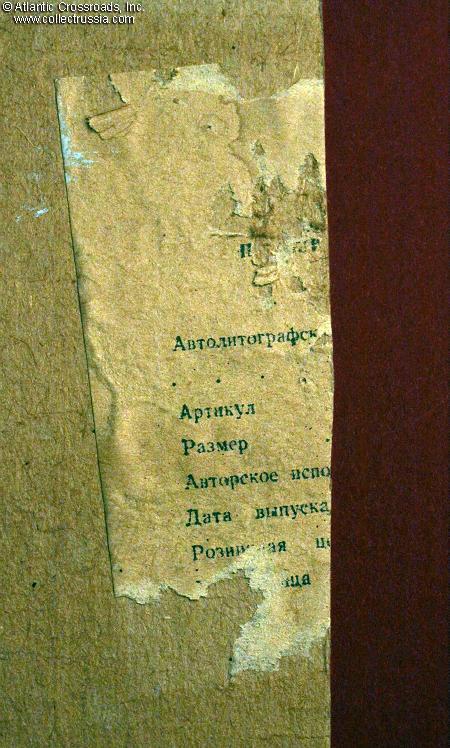 © Atlantic Crossroads, Inc.
www.collectrussia.com
Автолитографск
. . . .
Артикул
Размер
Авторское испо
Дата выпуска